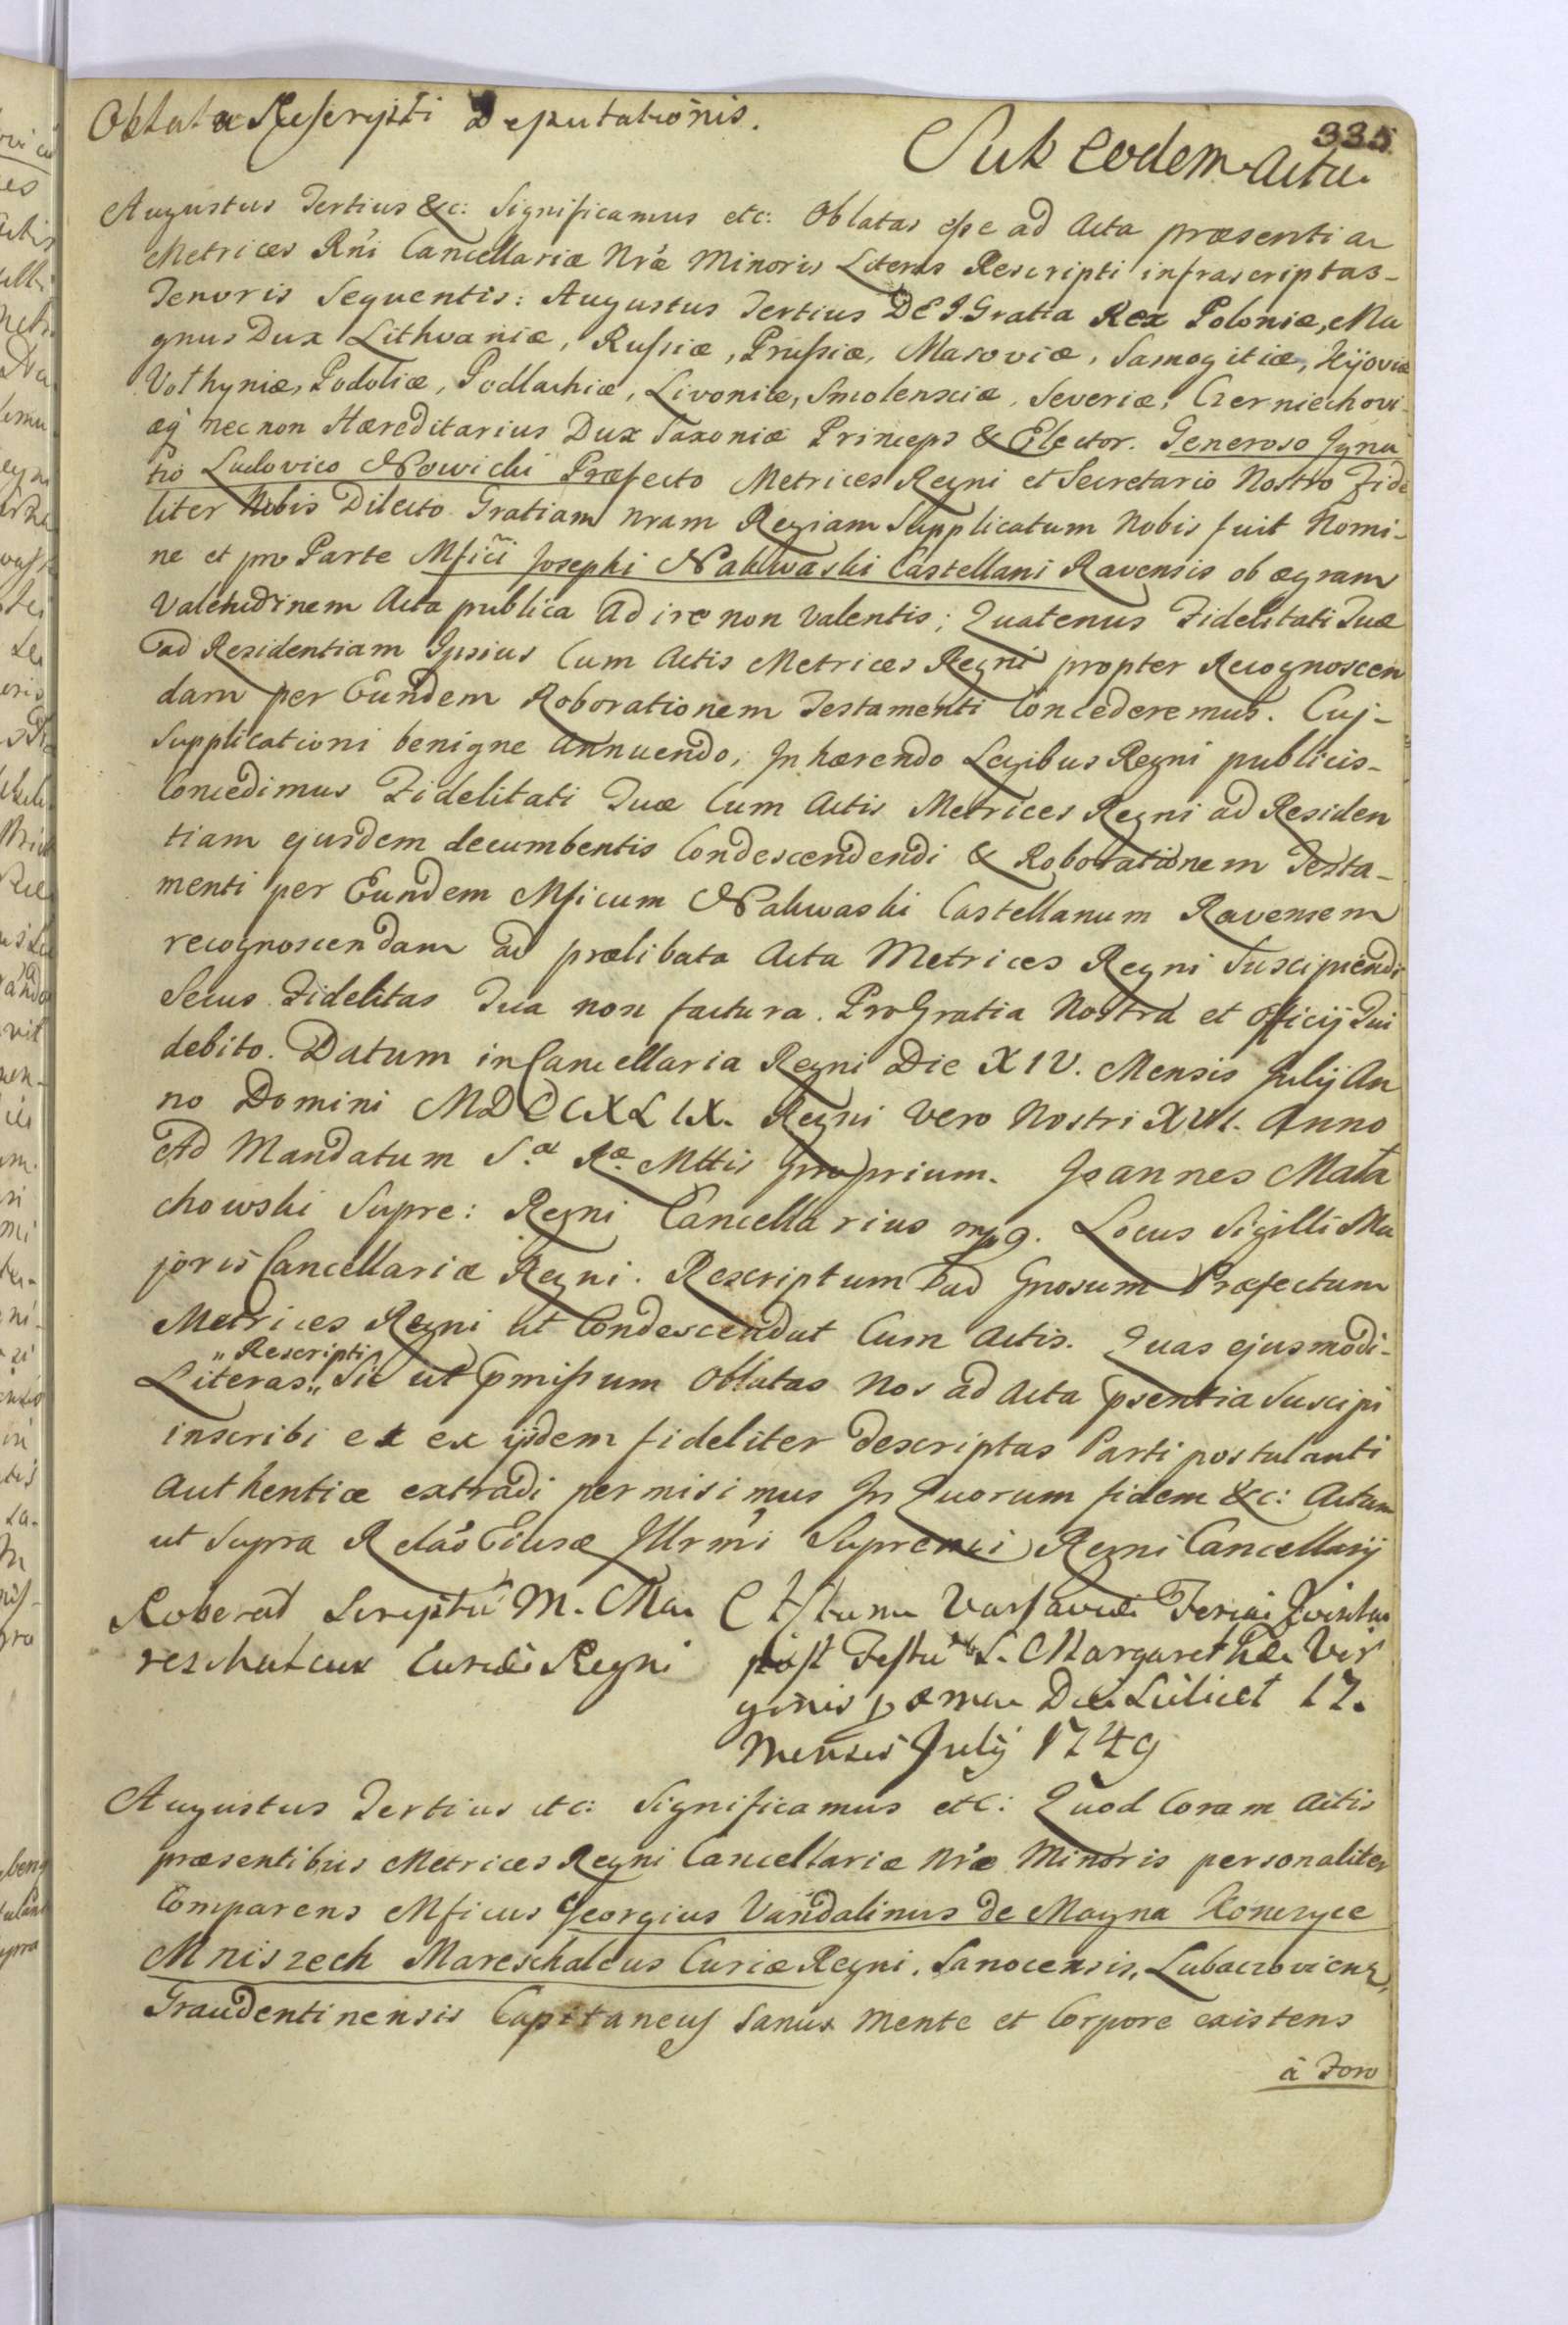 Oblata Rescripti Deputationis.
335
Sub eodem Actu.
Augustus Tertius &c: Significamus etc: Oblatas esse ad Acta præsentia
Metrices Rñi Cancellariæ Nræ Minoris Literas Rescripti infrascriptas
Tenoris Sequentis: Augustus Tertius DEI Gratia Rex Poloniæ, Ma
gnus Dux Lithvaniæ, Russiæ, Prussiæ, Masoviæ, Samogitiæ, Kijoviæ
Volhyniæ, Podoliæ, Podlachiæ, Livoniæ, Smolensciæ, Severiæ, Czerniechovi-
æq́ nec non Hæreditarius Dux Saxoniæ Princeps & Elector. Generoso Igna
tio Ludovico Nowicki Præfecto Metrices Regni et Secretario Nostro Fide
liter Nobis Dilecto Gratiam nram Regiam Supplicatum Nobis fuit Nomi-
ne et pro Parte Mfici Josephi Nakwaski Castellani Ravensis ob ægram
Valetudinem Acta publica Ad ire non Valentis; Quatenus Fidelitati Tuæ
ad Residentiam Ipsius Cum Actis Metrices Regni propter Recognoscen
dam per Eundem Roborationem Testamenti Concederemus. Cuj-
Supplicationi benigne Annuendo, Inhærendo Legibus Regni publicis-
Concedimus Fidelitati Tuæ Cum Actis Metrices Regni ad Residen
tiam ejusdem decumbentis Condescendendi & Roborationem Testa-
menti per Eundem Mficum Nakwaski Castellanum Ravensem
recognoscendam ad prælibata Acta Metrices Regni Suscipiendi
Secus Fidelitas Tua non factura. Pro Gratia Nostra et Officij Sui
debito. Datum in Cancellaria Regni Die XIV. Mensis Julij An
no Domini MDCCXLIX. Regni Vero Nostri XVI. Anno
Ad Mandatum S.æ R.æ Mttis proprium. Joannes Mała
chowski Supre: Regni Cancellarius mpp. Locus Sigilli Ma
joris Cancellariæ Regni. Rescriptum ad Gnosum Præfectum
Metrices Regni ut Condescendat Cum Actis. Quas ejusmodi-
„Rescripti
Literas„ Sic ut pmissum Oblatas Nos ad Acta psentia Suscipi
inscribi et ex ijsdem fideliter descriptas Parti postulanti
Authenticæ extradi permisimus In Quorum fidem &c: Actum
ut Supra Relaõ Eiusdæ Illrmi Supremi Regni Cancellarij
Roborat Scriptũ M. Ma
reschalcus Curiæ Regni
Actum Varsaviæ Feria Quinta
post Festũ S. Margarethæ Vir
ginis pxma Die Scilicet 17.
Mensis Julij 1749
Augustus Tertius etc: Significamus etc: Quod Coram Actis
præsentibus Metrices Regni Cancellariæ Nræ Minoris personaliter
Comparens Mficus Georgius Vandalinus de Magna Konczyce
Mniszech Mareschalcus Curiæ Regni, Sanocensis, Lubaczoviens,
Graudentinensis Capitaneus Sanus Mente et Corpore existens
à Foro